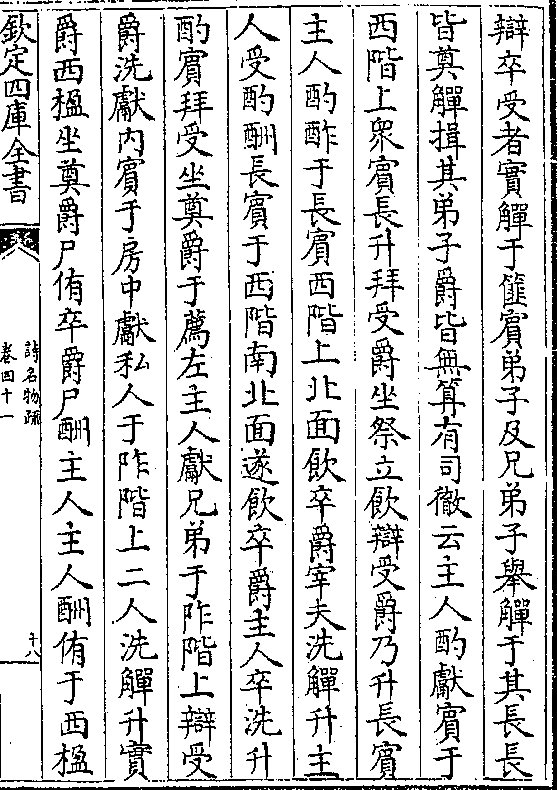 辯卒受者實觶于篚賓弟子及兄弟子舉觶于其長長
皆奠觶揖其弟子爵皆無算有司徹云主人酌獻賓于
西階上衆賓長升拜受爵坐祭立飲辯受爵乃升長賓
主人酌酢于長賓西階上北面飲卒爵宰夫洗觶升主
人受酌酬長賓于西階南北面遂飲卒爵主人卒洗升
酌賓拜受坐奠爵于薦左主人獻兄弟于阼階上辯受
爵洗獻内賓于房中獻私人于阼階上二人洗觶升實
爵西楹坐奠爵尸侑卒爵尸酬主人主人酬侑于西楹
欽定四庫全書
詩名物疏
卷四十一
十八